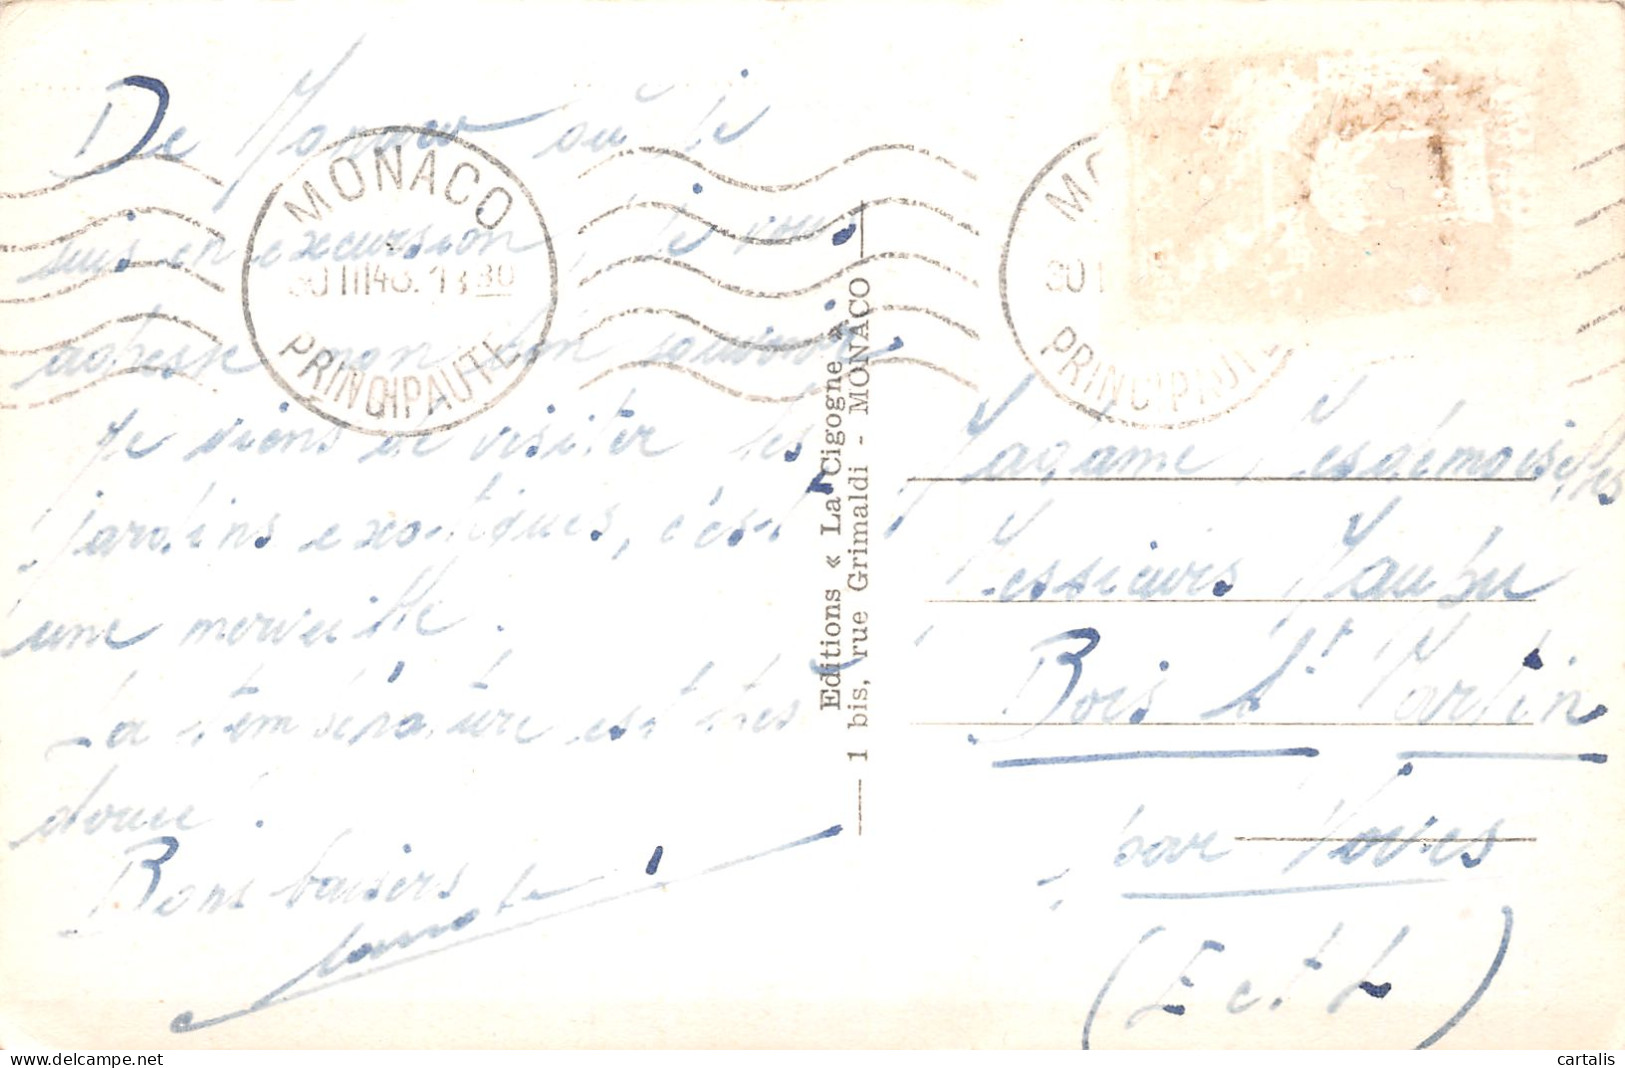 De Monaco où je
suis en excursion, je vous
adresse mon bon souvenir.
Je viens de visiter les
jardins exotiques, c'est
une merveille.
La température est très
douce.
Bons baisers
MONACO
PRINCIPAUTE
Editions « La Cigogne »
1 bis, rue Grimaldi - MONACO
MO
PRINCIPAUTE
Madame, Mesdemoiselles
Messieurs
Bois St Martin
par Voves
(E et L)
cartalis